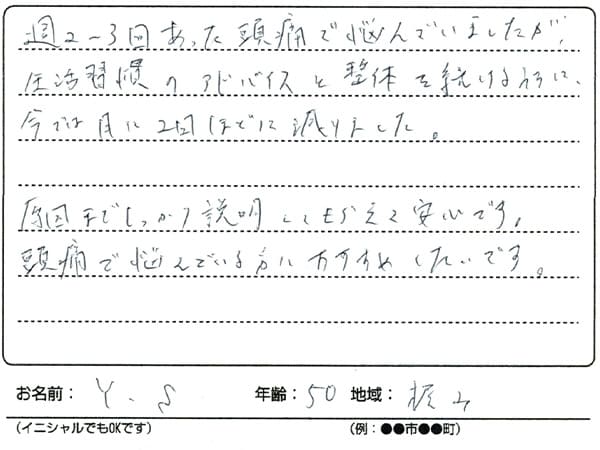 週2〜3回あった頭痛で悩んでいましたが、
生活習慣のアドバイスと整体を続けるうちに、
今では月に2回ほどに減りました。
原因までしっかり説明してもらえて安心です。
頭痛で悩んでいる方におすすめしたいです。
お名前： Y.S 年齢：50 地域：
(イニシャルでもOKです) (例：●●市●●町)